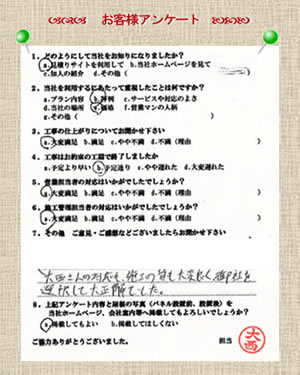 お客様アンケート
1、どのようにして当社をお知りになりましたか？
a.見積りサイトを利用して b.当社ホームページを見て
c.知人の紹介 d.その他（
2、当社を利用するにあたって重視したことは何ですか？
a.プラン内容 b.評判 c.サービスや対応のよさ
d.当社の場所 e.価格 f.営業マンの人柄
g.その他（ ）
3、工事の仕上がりについてお聞かせ下さい
a.大変満足 b.満足 c.やや不満 d.不満（理由 ）
4、工事はお約束の工期で終了しましたか
a.予定より早い b.予定通り c.やや遅れた d.大変遅れた
5、営業担当者の対応はいかがでしたでしょうか？
a.大変満足 b.満足 c.やや不満 d.不満（理由 ）
6、施工管理担当者の対応はいかがでしたでしょうか？
a.大変満足 b.満足 c.やや不満 d.不満（理由 ）
7、その他 ご意見・ご感想などございましたらお聞かせ下さい
大西さんの対応も、施工の質も大変良く、御社を
選択して大正解でした。
8、上記アンケート内容と屋根の写真（パネル設置前、設置後）を
当社ホームページ、会社案内等へ掲載してもよろしいでしょうか？
a.掲載してもよい b.掲載してほしくない
ご協力ありがとうございました。 担当 大西